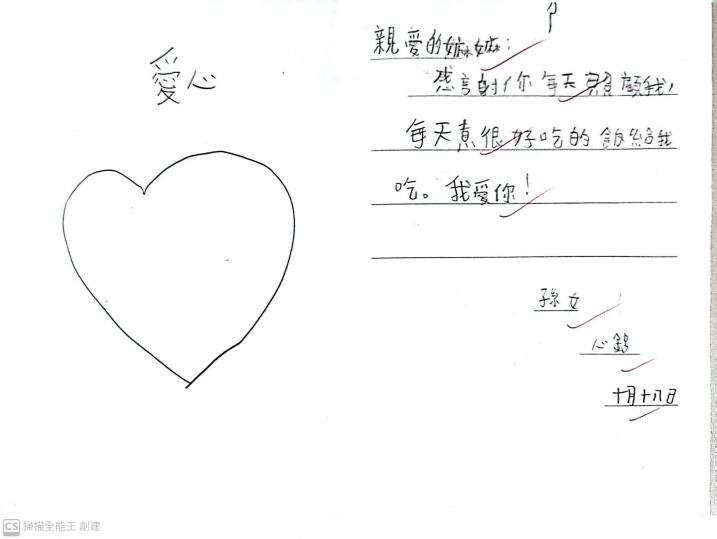 愛心
親愛的嫲嫲：
感謝你每天照顧我，
每天煮很好吃的飯給我
吃。我愛你！
孫女
心
十月十八日
CS 掃描全能王 創建